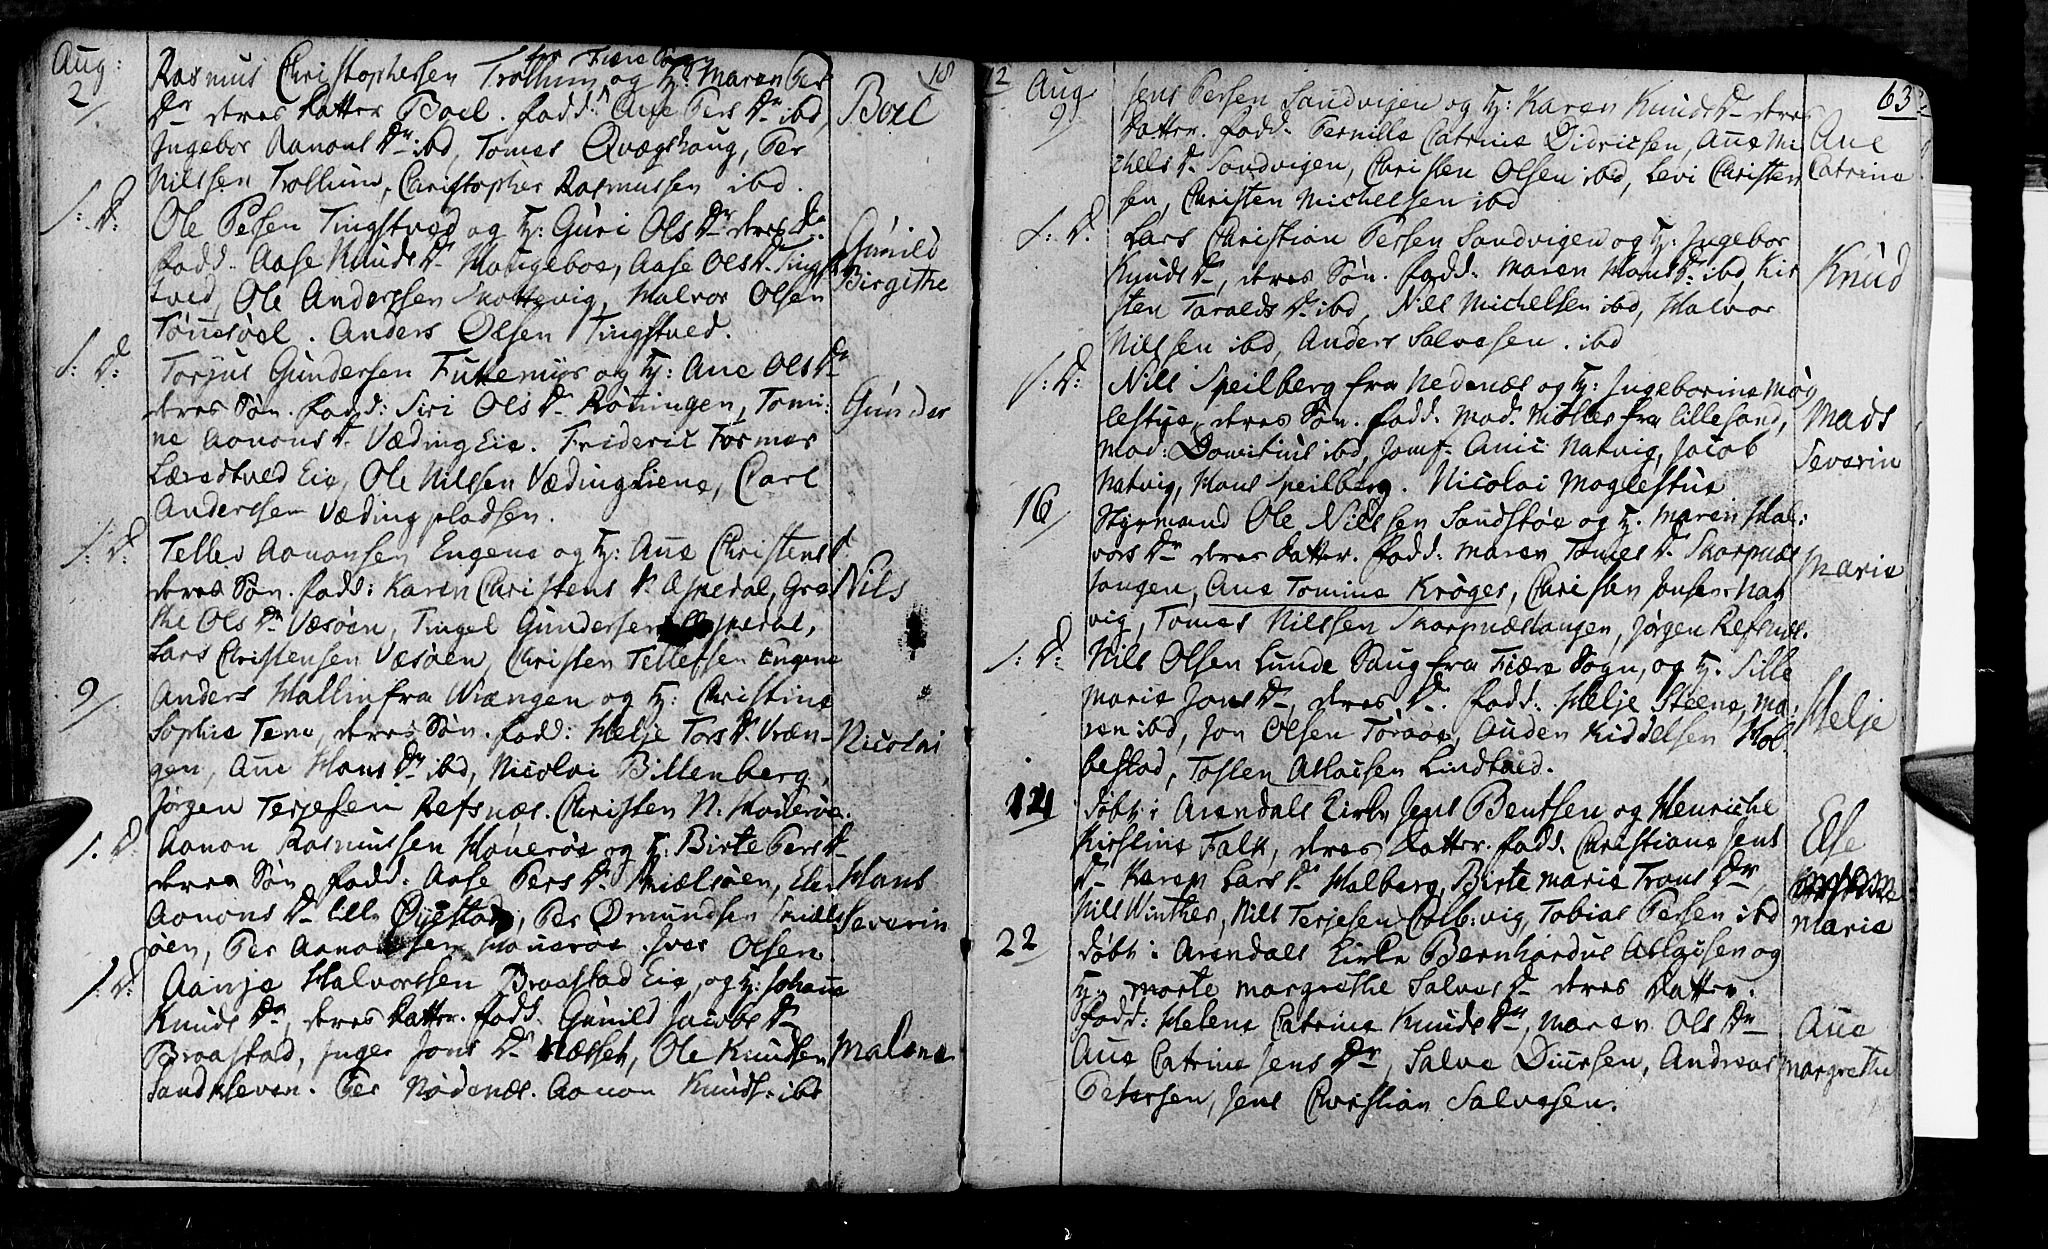 Aug:
2/
fra Fiære Sogn
Rasmus Christophersen Trollum og H: Maren Pers
Dr deres Datter Boel. fadd: Ane Pers Dr ibd,
Ingebor Aanons Dr ibd, Tomes Qvægshoug, Per
Nilssen Trollum, Christopher Rasmussen ibd.
Boel
S: D:
Ole Persen Tingstved og H: Guri Ols Dr deres Dr
fadd. Aase Knuds Dr Hougeboe, Aase Ols Dr Tingst
tved, Ole Anderssen Skottevig, Halvor Olsen
Tönnesöel. Anders Olsen Tingstved.
Gunild
Birgithe
S: D:
Torjus Gundersen Futtemyr og H: Ane Ols Dr
deres Sön. fadd: Siri Ols Dr Röningen, Tomi:
ne Aanons Dr Væding Eie. Frideric Former
Læredtved Eie, Ole Nilssen Væding Liene, Carl
Anderssen Væding pladsen.
Gunder
S: D:
Tellev Aanonsen Engene og H: Ane Christens D
deres Sön. fadd: Karen Christens Dr Asperdal, Gre
the Ols Dr Væsöen, Tingel Gundersen Asperdal,
Lars Christensen Væsöen, Christen Tellefsen Engene
Nils
9/
Anders Hallin fra Wrængen og H: Christine
Sophie Tene, deres Sön. fadd: Helje Tors Dr Vræn-
gen, Ane Hans Dr ibd, Nicolai Billenberg,
Jörgen Terjesen Refsnæs. Christen N: Haveröe.
Nicolai
S. D.
Aanon Rasmussen Haveröe og H: Birte Pers Dr
deres Sön fadd. Aase Pers Dr Mielsöen, Elen
Aanons Dr lille Öyestad, Per Ormundsen Mels
öen, Per Aanonssen Haveröe. Iver Olsen.
Hans
Severin
S: D:
Aanje Halvorssen Braastad Eie, og H: Johane
Knuds Dr, deres Datter. fadd. Gunild Jacobs Dr
Braastad, Inger Jons Dr Næsset, Ole Knudsen
Sandkleven. Per Rödenæs. Aanon Knuds: ibd
Malene
18
12
63
Aug
9/
Jens Persen Sandvigen og H: Karen Knuds Dr deres
Datter. fadd. Pernille Catrine Didricsen, Ane Mi
chels Dr Sandvigen, Christen Olsen ibd, Levi Christen
sen, Christen Michelsen ibd
Ane
Catrine
S: D.
Lars Christian Persen Sandvigen og H. Ingebor
Knuds Dr, deres Sön. fadd: Maren Hans Dr: ibd, Kir
sten Taralds Dr ibd, Nils Michelsen ibd, Halvor
Nilssen ibd, Anders Salvesen. ibd
Knud
S: D:
Nils Speilberg fra Nedenæs og H: Ingeborine Møg
lestue, deres Sön. fadd. Mad. Möller fra Lillesand,
Mad: Domitius ibd, Jomf. Anie Natvig, Jacob
Natvig, Hans Speilberg. Nicolai Moglestue
Mads
Severin
16/
Styrmand Ole Nilssen Sandstöe og H. Maren Hal:
vors Dr deres Datter. fadd: Maren Tomes Dr Skarpnæs
tangen, Ane Tomine Kröger, Christen Jensen Nat
vig, Tomes Nilssen Skarpnæstangen, Jörgen Refsnæs.
Marie
S: D:
Nils Olsen Lunde Saug fra Fiære Sogn, og H. Sille
Marie Jons Dr, deres Dr. fadd. Helje Steene, Ma:
ren ibd, Jon Olsen Töraae, Auden Kiddelsen Hol-
bestad, Tosten Aslacsen Lindtved.
Helje
121
Döbt i Arendals Kirke Jens Bentsen og Henriche
Kirstine Falk, deres Datter. fadd. Christiane Jens
Dr Karen Lars Dr Halberg, Birte Marie Trons Dr,
Nils Winther, Nils Terjesen Colb:vig, Tobias Persen ibd
Else
Marie
22
Döbt i Arendals Kirke Bernhardus Aslacsen og
H. Marte Margrethe Salves Dr deres Datter.
fadd: Helene Catrine Knuds Dr, Maren Ols Dr
Ane Catrine Jens Dr, Salve Duursen, Andreas
Petersen, Jens Christian Salvesen.
Ane
Margrethe